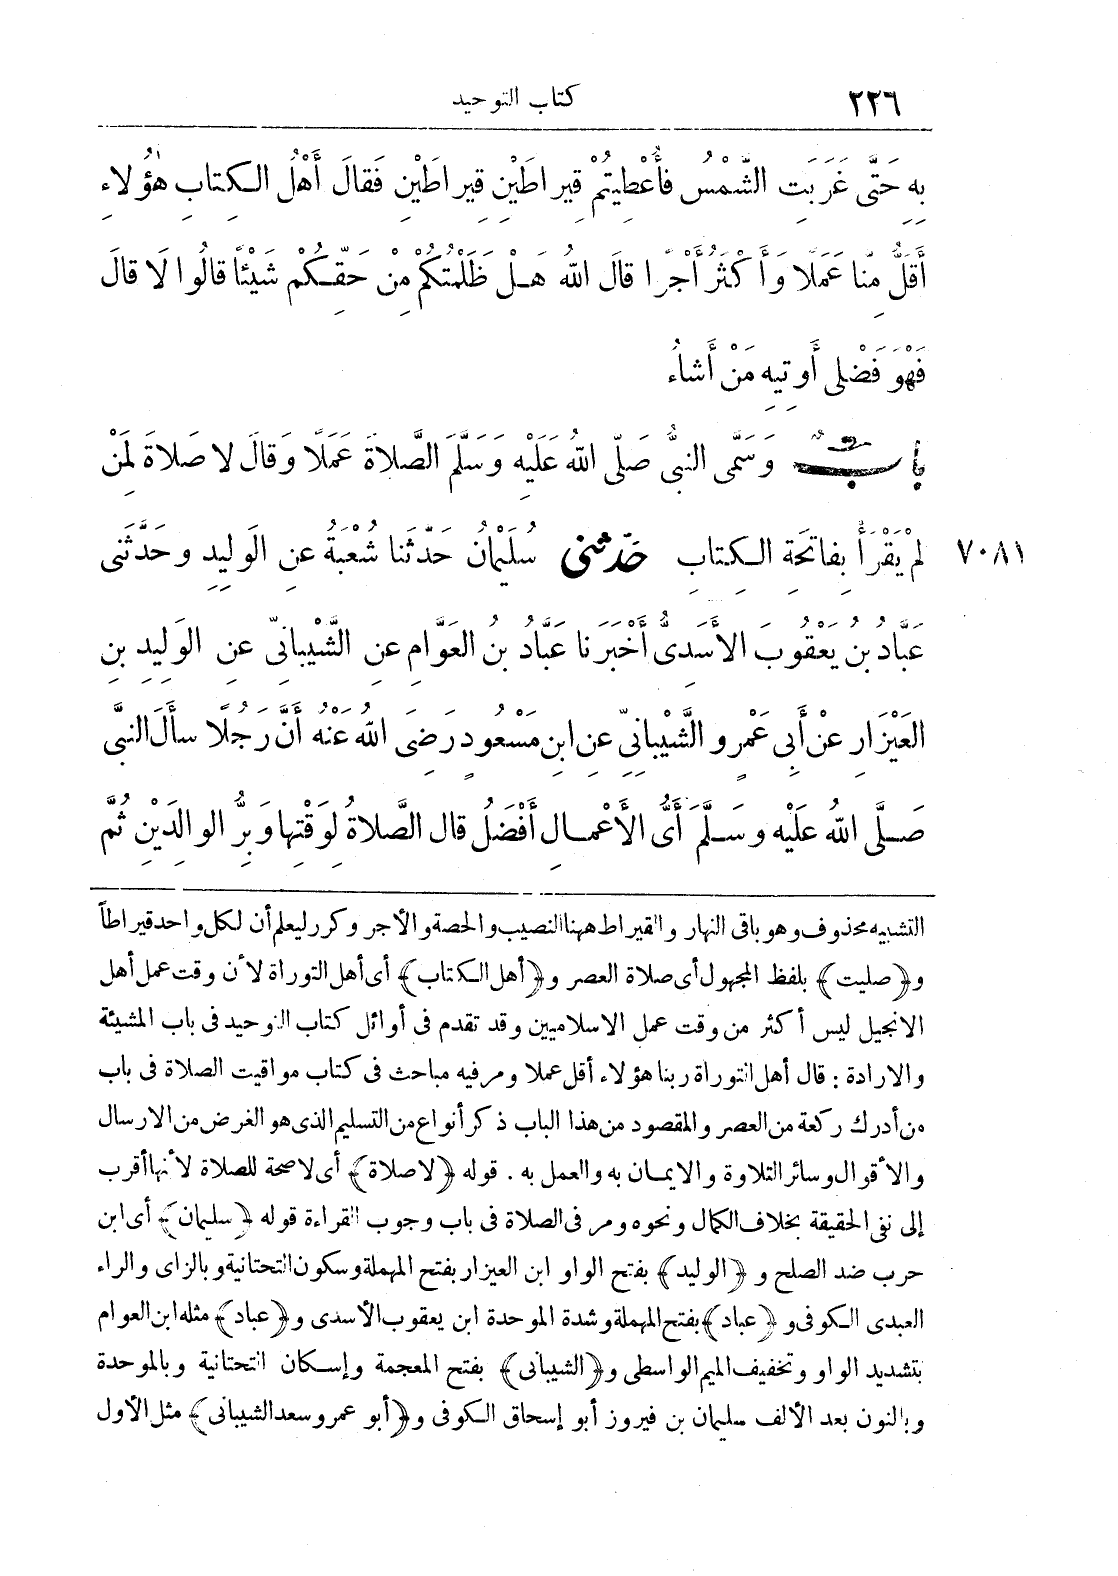 ٢٢٦ كتاب التوحيد
بِهِ حَتَّى غَرَبَتِ الشَّمْسُ فَأُعْطِيتُمْ قِيرَاطَيْنِ قِيرَاطَيْنِ فَقالَ أَهْلُ الكِتابِ هٰؤُلاءِ
أَقَلُّ مِنَّا عَمَلًا وَأَكْثَرُ أَجْرًا قالَ اللهُ هَلْ ظَلَمْتُكُمْ مِنْ حَقِّكُمْ شَيْئًا قالُوا لَا قالَ
فَهْوَ فَضْلِى أُوتِيهِ مَنْ أَشاءُ
بابٌ وَسَمَّى النبىُّ صَلَّى اللهُ عَلَيْهِ وَسَلَّمَ الصَّلاةَ عَمَلًا وَقالَ لا صَلاةَ لِمَنْ
لَمْ يَقْرَأْ بِفاتِحَةِ الكِتابِ حَدَّثَنِى سُلَيْمانُ حَدَّثَنا شُعْبَةُ عنِ الوَلِيدِ وحَدَّثَنى ٧٠٨١
عَبَّادُ بنُ يَعْقُوبَ الأَسَدِىُّ أَخْبَرَنا عَبَّادُ بنُ العَوَّامِ عنِ الشَّيْبانِىِّ عنِ الوَلِيدِ بنِ
العَيْزَارِ عنْ أَبِى عَمْرٍو الشَّيْبانِىِّ عنِ ابنِ مَسْعُودٍ رَضِىَ اللهُ عَنْهُ أَنَّ رَجُلًا سأَلَ النبىَّ
صَلَّى اللهُ عَلَيْه وسَلَّمَ أَىُّ الأَعْمالِ أَفْضَلُ قال الصَّلاةُ لِوَقْتِها وَبِرُّ الوالِدَيْنِ ثُمَّ
التشبيه محذوف وهو باقى النهار والقيراط ههنا النصيب والحصة والأجر وكرر ليعلم أن لكل واحد قيراطاً
و﴿صليت﴾ بلفظ المجهول أى صلاة العصر و﴿أهل الكتاب﴾ أى أهل التوراة لأن وقت عمل أهل
الانجيل ليس أكثر من وقت عمل الاسلاميين وقد تقدم فى أوائل كتاب التوحيد فى باب المشيئة
والارادة : قال أهل التوراة ربنا هؤلاء أقل عملا ومر فيه مباحث فى كتاب مواقيت الصلاة فى باب
من أدرك ركعة من العصر والمقصود من هذا الباب ذكر أنواع من التسليم الذى هو الغرض من الارسال
والأقوال وسائر التلاوة والايمان به والعمل به . قوله ﴿لا صلاة﴾ أى لا صحة للصلاة لأنها أقرب
إلى نفى الحقيقة بخلاف الكمال ونحوه ومر فى الصلاة فى باب وجوب القراءة قوله ﴿سليمان﴾ أى ابن
حرب ضد الصلح و ﴿الوليد﴾ بفتح الواو ابن العيزار بفتح المهملة وسكون التحتانية وبالزاى والراء
العبدى الكوفى و ﴿عباد﴾ بفتح المهملة وشدة الموحدة ابن يعقوب الأسدى و﴿عباد﴾ مثله ابن العوام
بتشديد الواو وتخفيف الميم الواسطى و﴿الشيبانى﴾ بفتح المعجمة وإسكان التحتانية وبالموحدة
وبالنون بعد الألف سليمان بن فيروز أبو إسحاق الكوفى و﴿أبو عمرو سعد الشيبانى﴾ مثل الأول